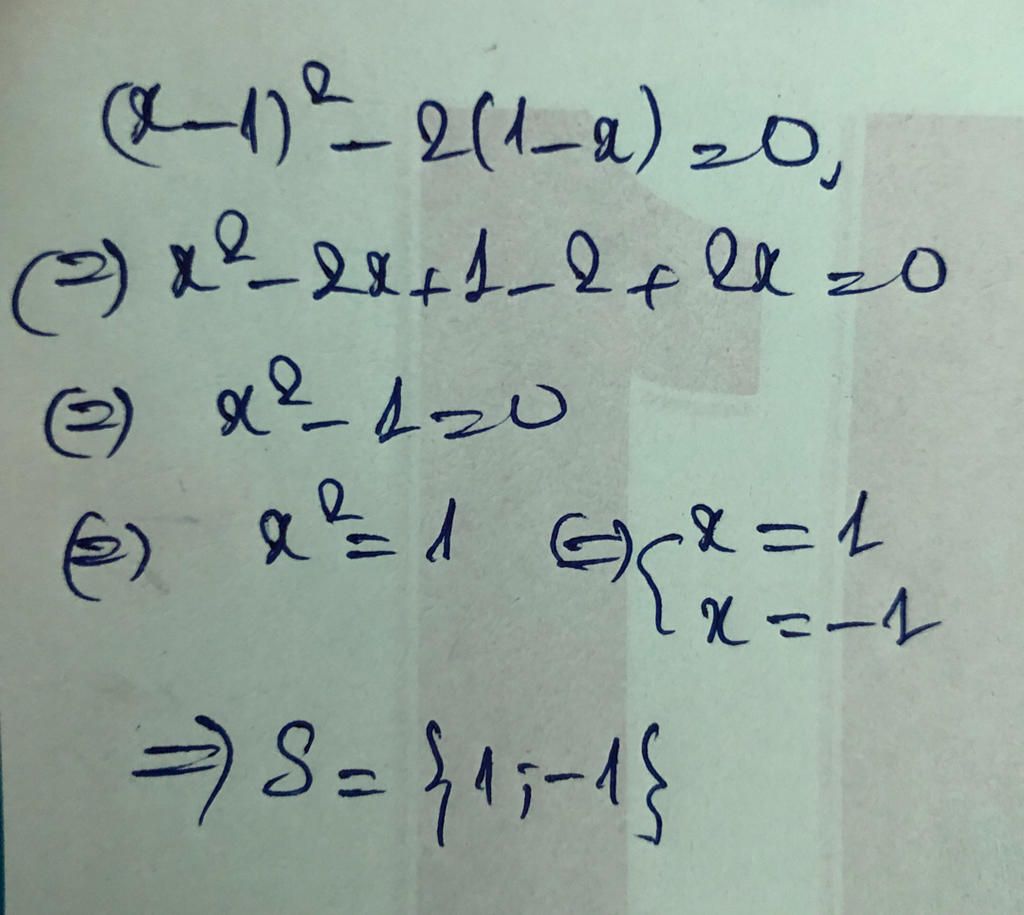 (x-1)² - 2(1-x) = 0,
(=) x² - 2x + 1 - 2 + 2x = 0
(=) x² - 1 = 0
(=) x² = 1 (=) { x = 1
x = -1
=) S = {1; -1}